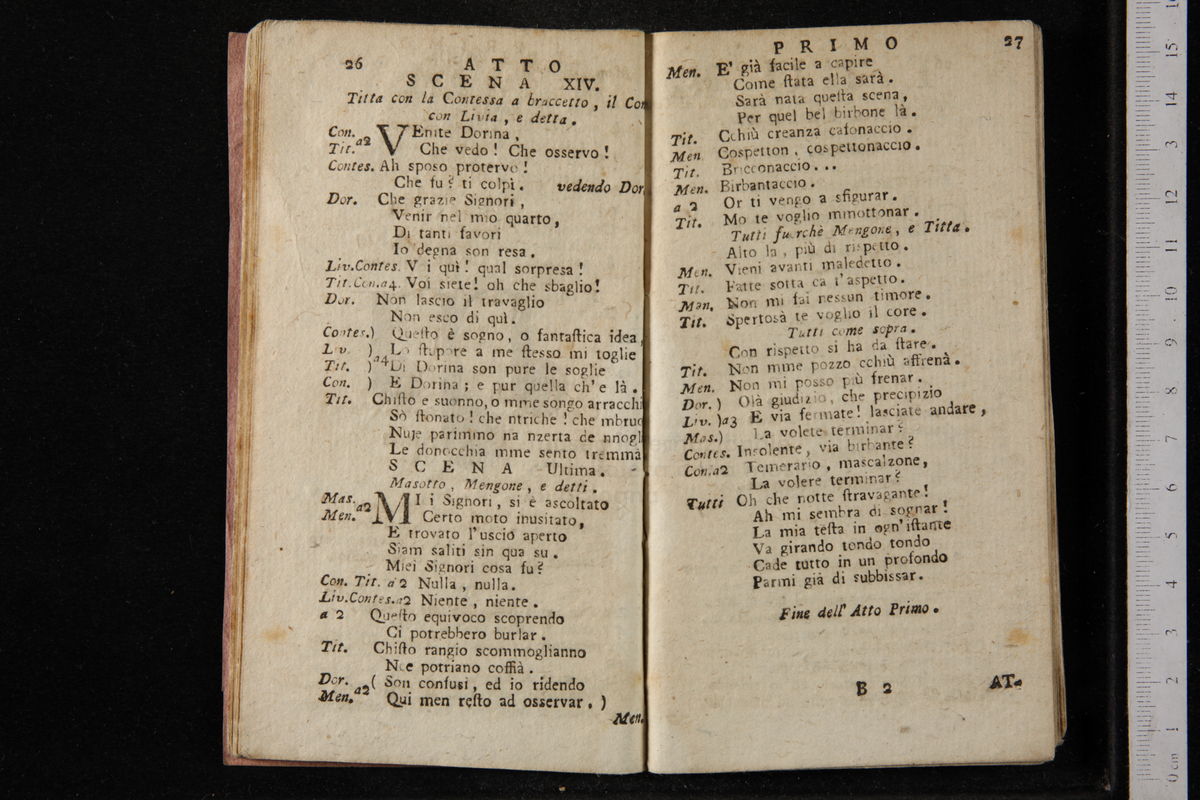 26 ATTO
SCENA XIV.
Titta con la Contessa a braccetto, il Con
con Livia, e detta.
Con. a2 VEnite Dorina,
Tit. Che vedo! Che osservo!
Contes. Ah sposo protervo!
Che fu? ti colpì. vedendo Dor
Dor. Che grazie Signori,
Venir nel mio quarto,
Di tanti favori
Io degna son resa.
Liv.Contes. Voi quì! qual sorpresa!
Tit.Con.a4. Voi siete! oh che sbaglio!
Dor. Non lascio il travaglio
Non esco di quì.
Contes.) Questo è sogno, o fantastica idea,
Liv. )a4 Lo stupore a me stesso mi toglie
Tit. ) Di Dorina son pure le soglie
Con. ) E Dorina; e pur quella ch'e là.
Tit. Chisto e suonno, o mme songo arracchi
Sò stonato! che ntriche! che mbruo
Nuje parimmo na nzerta de nnogl
Le donocchia mme sento tremmà
SCENA Ultima.
Masotto, Mengone, e detti.
Mas. a2 MIei Signori, si è ascoltato
Men. Certo moto inusitato,
E trovato l'uscio aperto
Siam saliti sin qua su.
Miei Signori cosa fu?
Con. Tit. a 2 Nulla, nulla.
Liv.Contes.a2 Niente, niente.
a 2 Questo equivoco scoprendo
Ci potrebbero burlar.
Tit. Chisto rangio scommoglianno
Nce potriano coffià.
Dor. a2 ( Son confusi, ed io ridendo
Men. Qui men resto ad osservar. )
Men.
PRIMO 27
Men. E' già facile a capire
Come stata ella sarà.
Sarà nata questa scena,
Per quel bel birbone là.
Tit. Cchiù creanza cafonaccio.
Men Cospetton, cospettonaccio.
Tit. Bricconaccio...
Men. Birbantaccio.
a 2 Or ti vengo a sfigurar.
Tit. Mo te voglio mmottonar.
Tutti fuorchè Mengone, e Titta.
Alto la, più di rispetto.
Men. Vieni avanti maledetto.
Tit. Fatte sotta ca t'aspetto.
Men. Non mi fai nessun timore.
Tit. Spertosà te voglio il core.
Tutti come sopra.
Con rispetto si ha da stare.
Tit. Non mme pozzo cchiù affrenà.
Men. Non mi posso più frenar.
Dor.) Olà giudizio, che precipizio
Liv. )a3 E via fermate! lasciate andare,
Mas.) La volete terminar?
Contes. Insolente, via birbante?
Con.a2 Temerario, mascalzone,
La volere terminar?
Tutti Oh che notte stravagante!
Ah mi sembra di sognar!
La mia testa in ogn'istante
Va girando tondo tondo
Cade tutto in un profondo
Parmi già di subbissar.
Fine dell' Atto Primo.
B 2 AT-